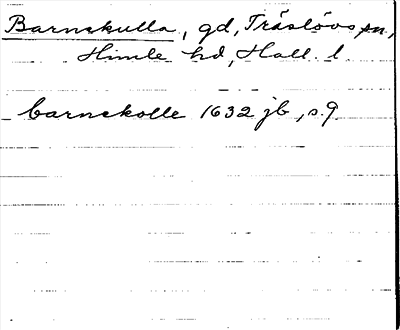 Barnekulla, gd, Träslövs sn,
Himle hd, Hall. l.
barnekolle 1632 jb, s. 9